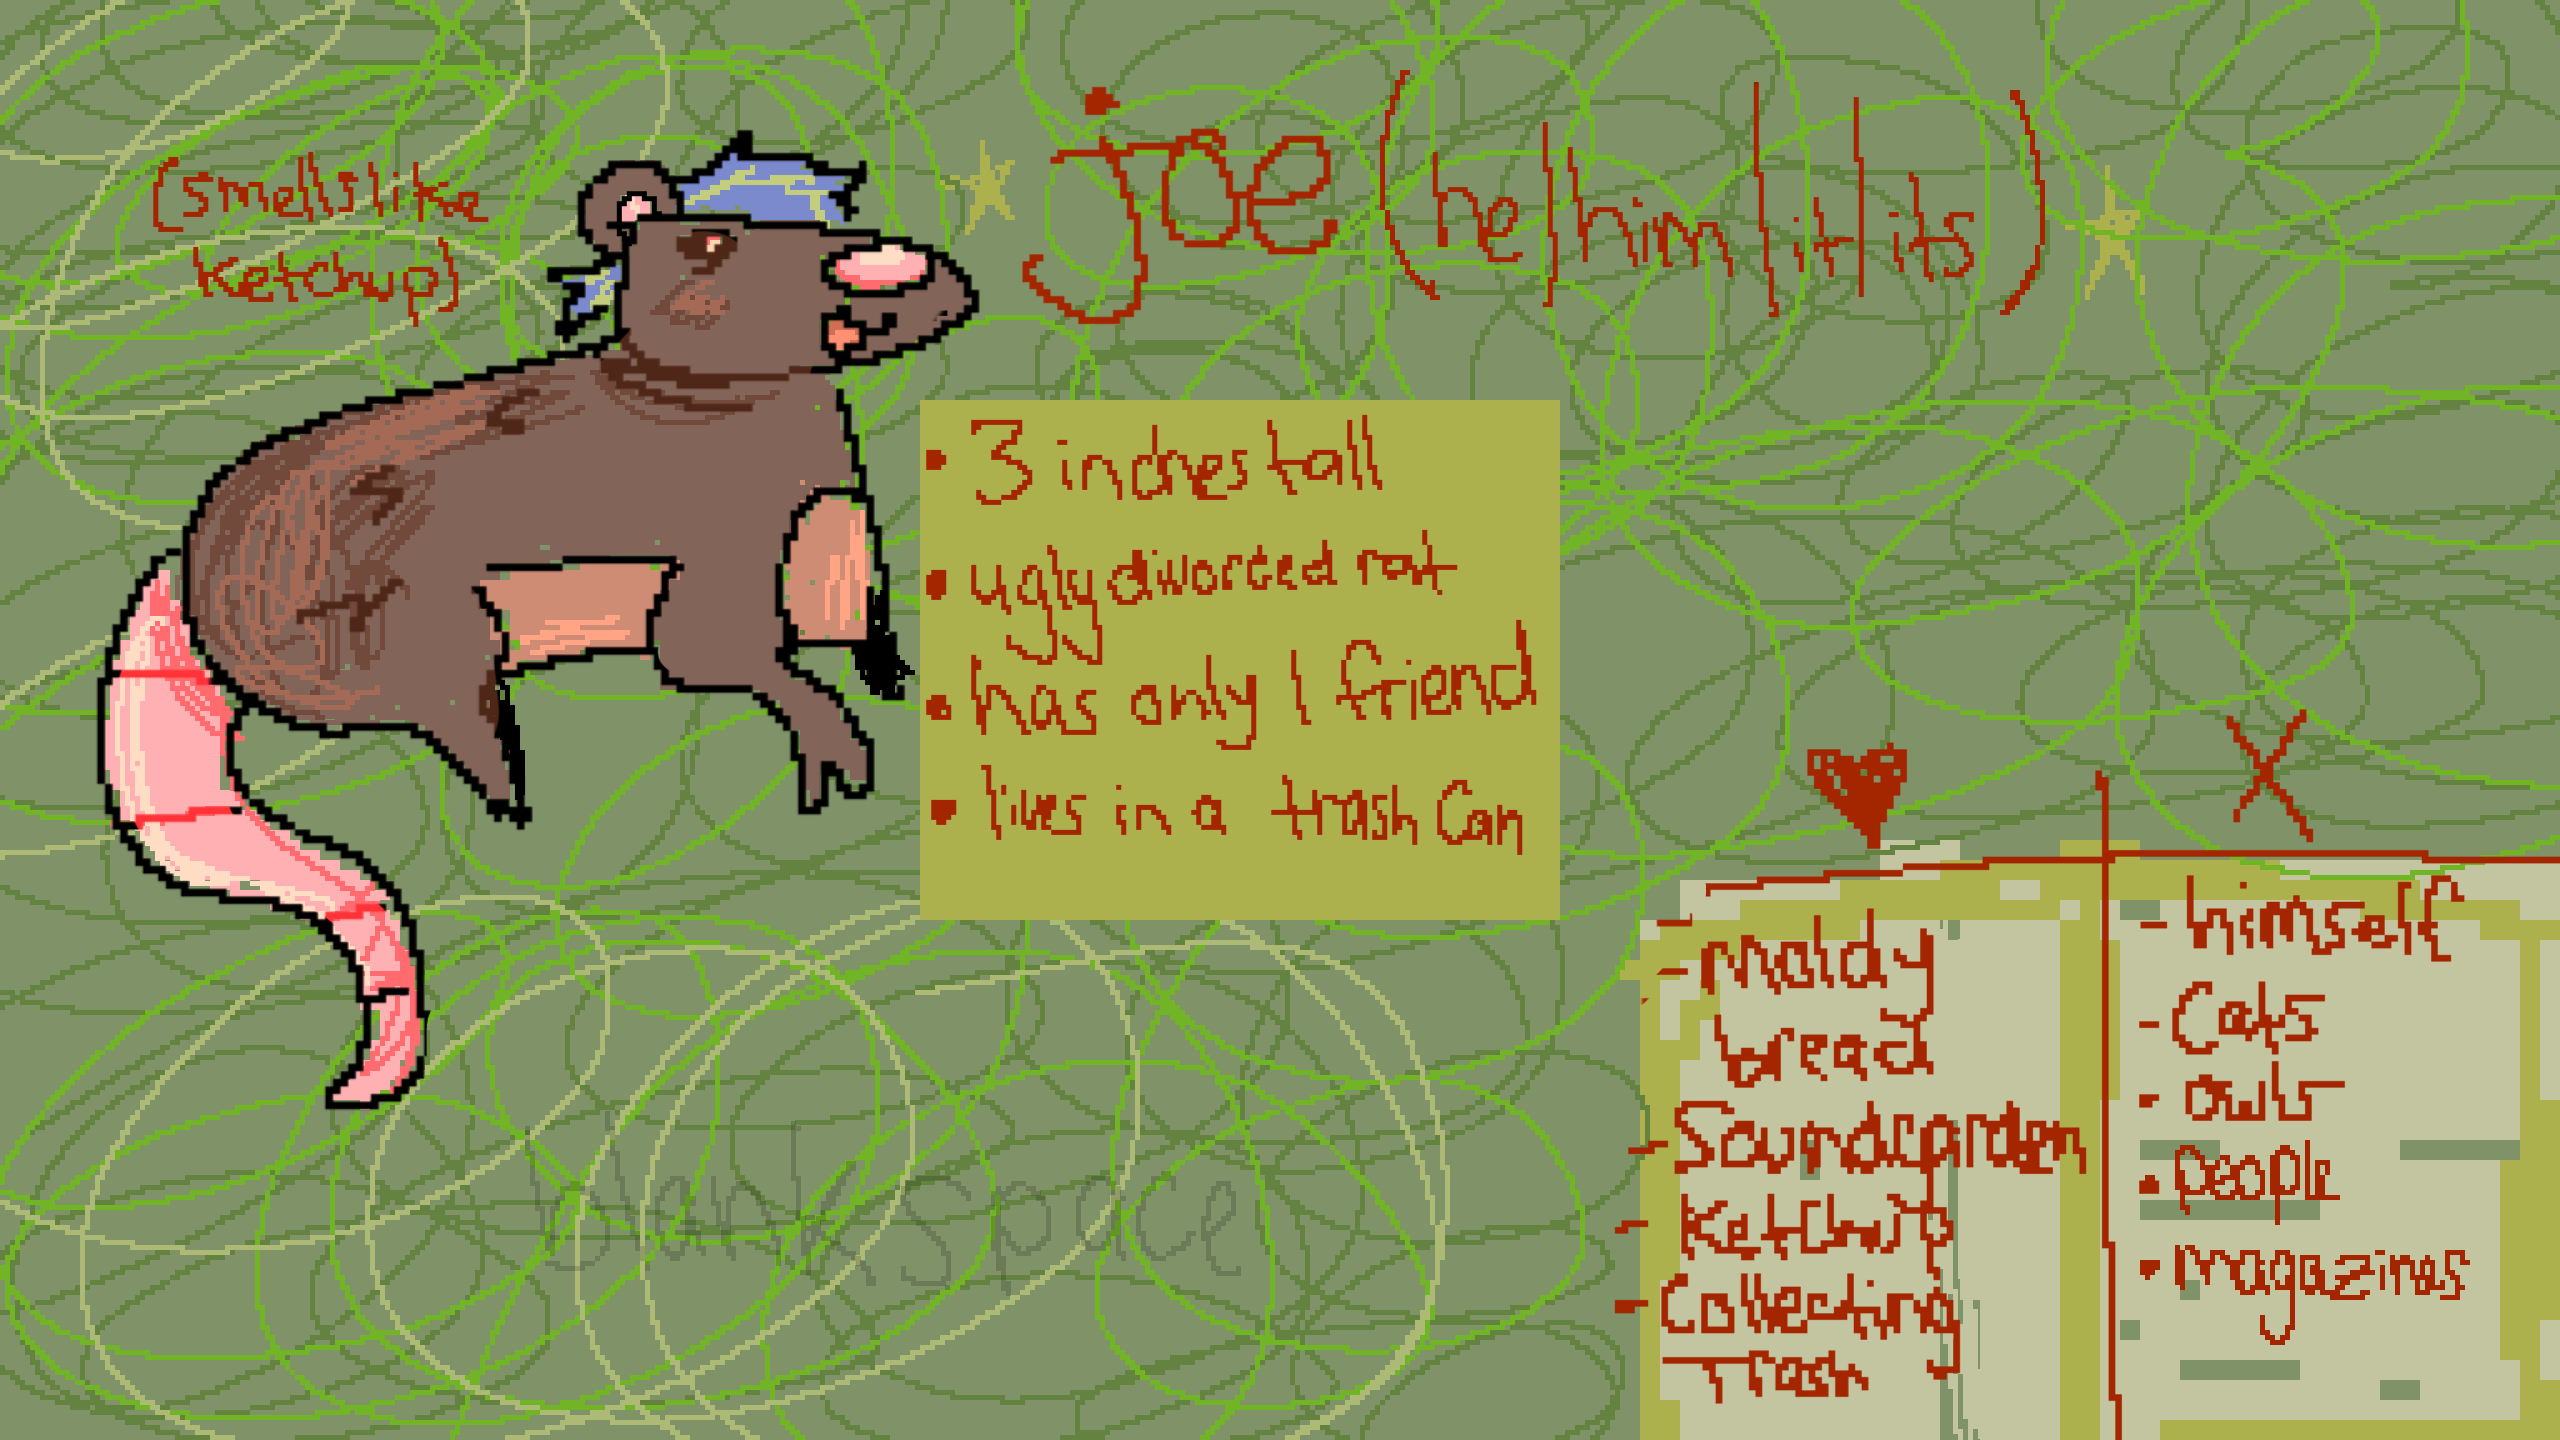 (smells like
ketchup)
Joe (he/him/it/its)
• 3 inches tall
• ugly divorced rat
• has only 1 friend
• lives in a trash can
- moldy
bread
- Soundgarden
- Ketchup
- Collecting
Trash
X
- himself
- Cats
- owls
• people
• magazines